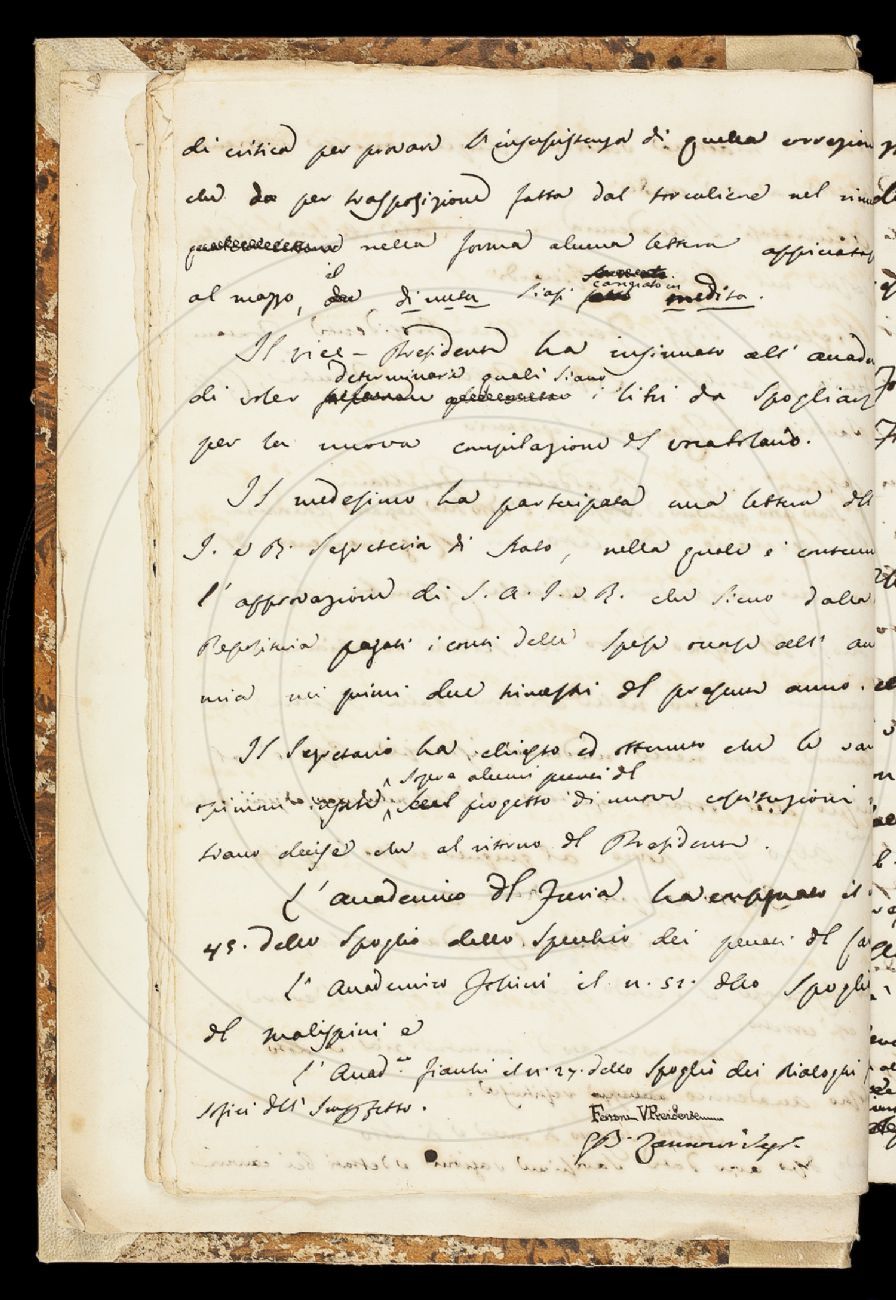 di critica per provare l'insussistenza di quella correzion
che per trasposizione fatta dal torcoliere nel rim
nella forma alcuna lettera appiccata
al mazzo, il di nuta siasi cangiato in medita.
Il vice-Presidente ha insinuato all' Accade
determinare quali siano
di voler i libri da spogliarsi
per la nuova compilazione del vocabolario.
Il medesimo ha partecipata una lettera dell
I. e R. Segreteria di Stato, nella quale è contenu
l'approvazione di S. A. I. e R. che sieno dalla
Depositeria pagati i conti delle spese occorse all' Acc
mia nei primi due trimestri del presente anno.
Il Segretario ha chiesto ed ottenuto che le var
sopra alcuni punti del
opinioni progetto di nuove costituzioni
trano decise che al ritorno del Presidente.
L'Accademico Del Furia ha consegnato il
45. dello Spoglio dello Specchio dei peccati del Ca
L'Accademico il n. 52. dello Spoglio
del Malispini e
L'Accad.co Fiacchi il n. 27. dello Spoglio dei Dialoghi
sofici dell'
Ferroni V. Presidente
G. B. Zannoni Segr.